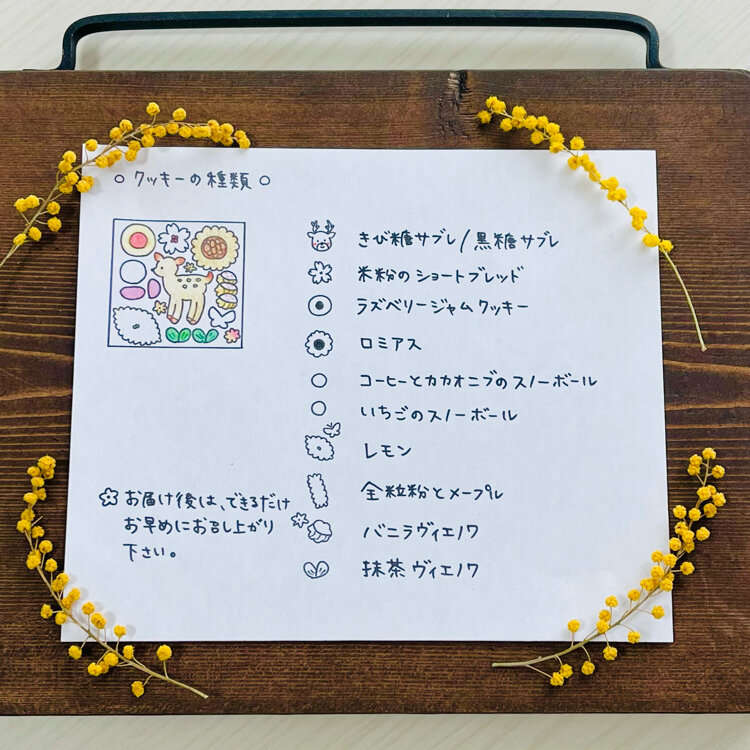 ○ クッキーの種類 ○
きび糖サブレ/黒糖サブレ
米粉のショートブレッド
ラズベリージャムクッキー
ロミアス
コーヒーとカカオニブのスノーボール
いちごのスノーボール
レモン
全粒粉とメープル
バニラヴィエノワ
抹茶ヴィエノワ
お届け後は、できるだけ
お早めにお召し上がり
下さい。